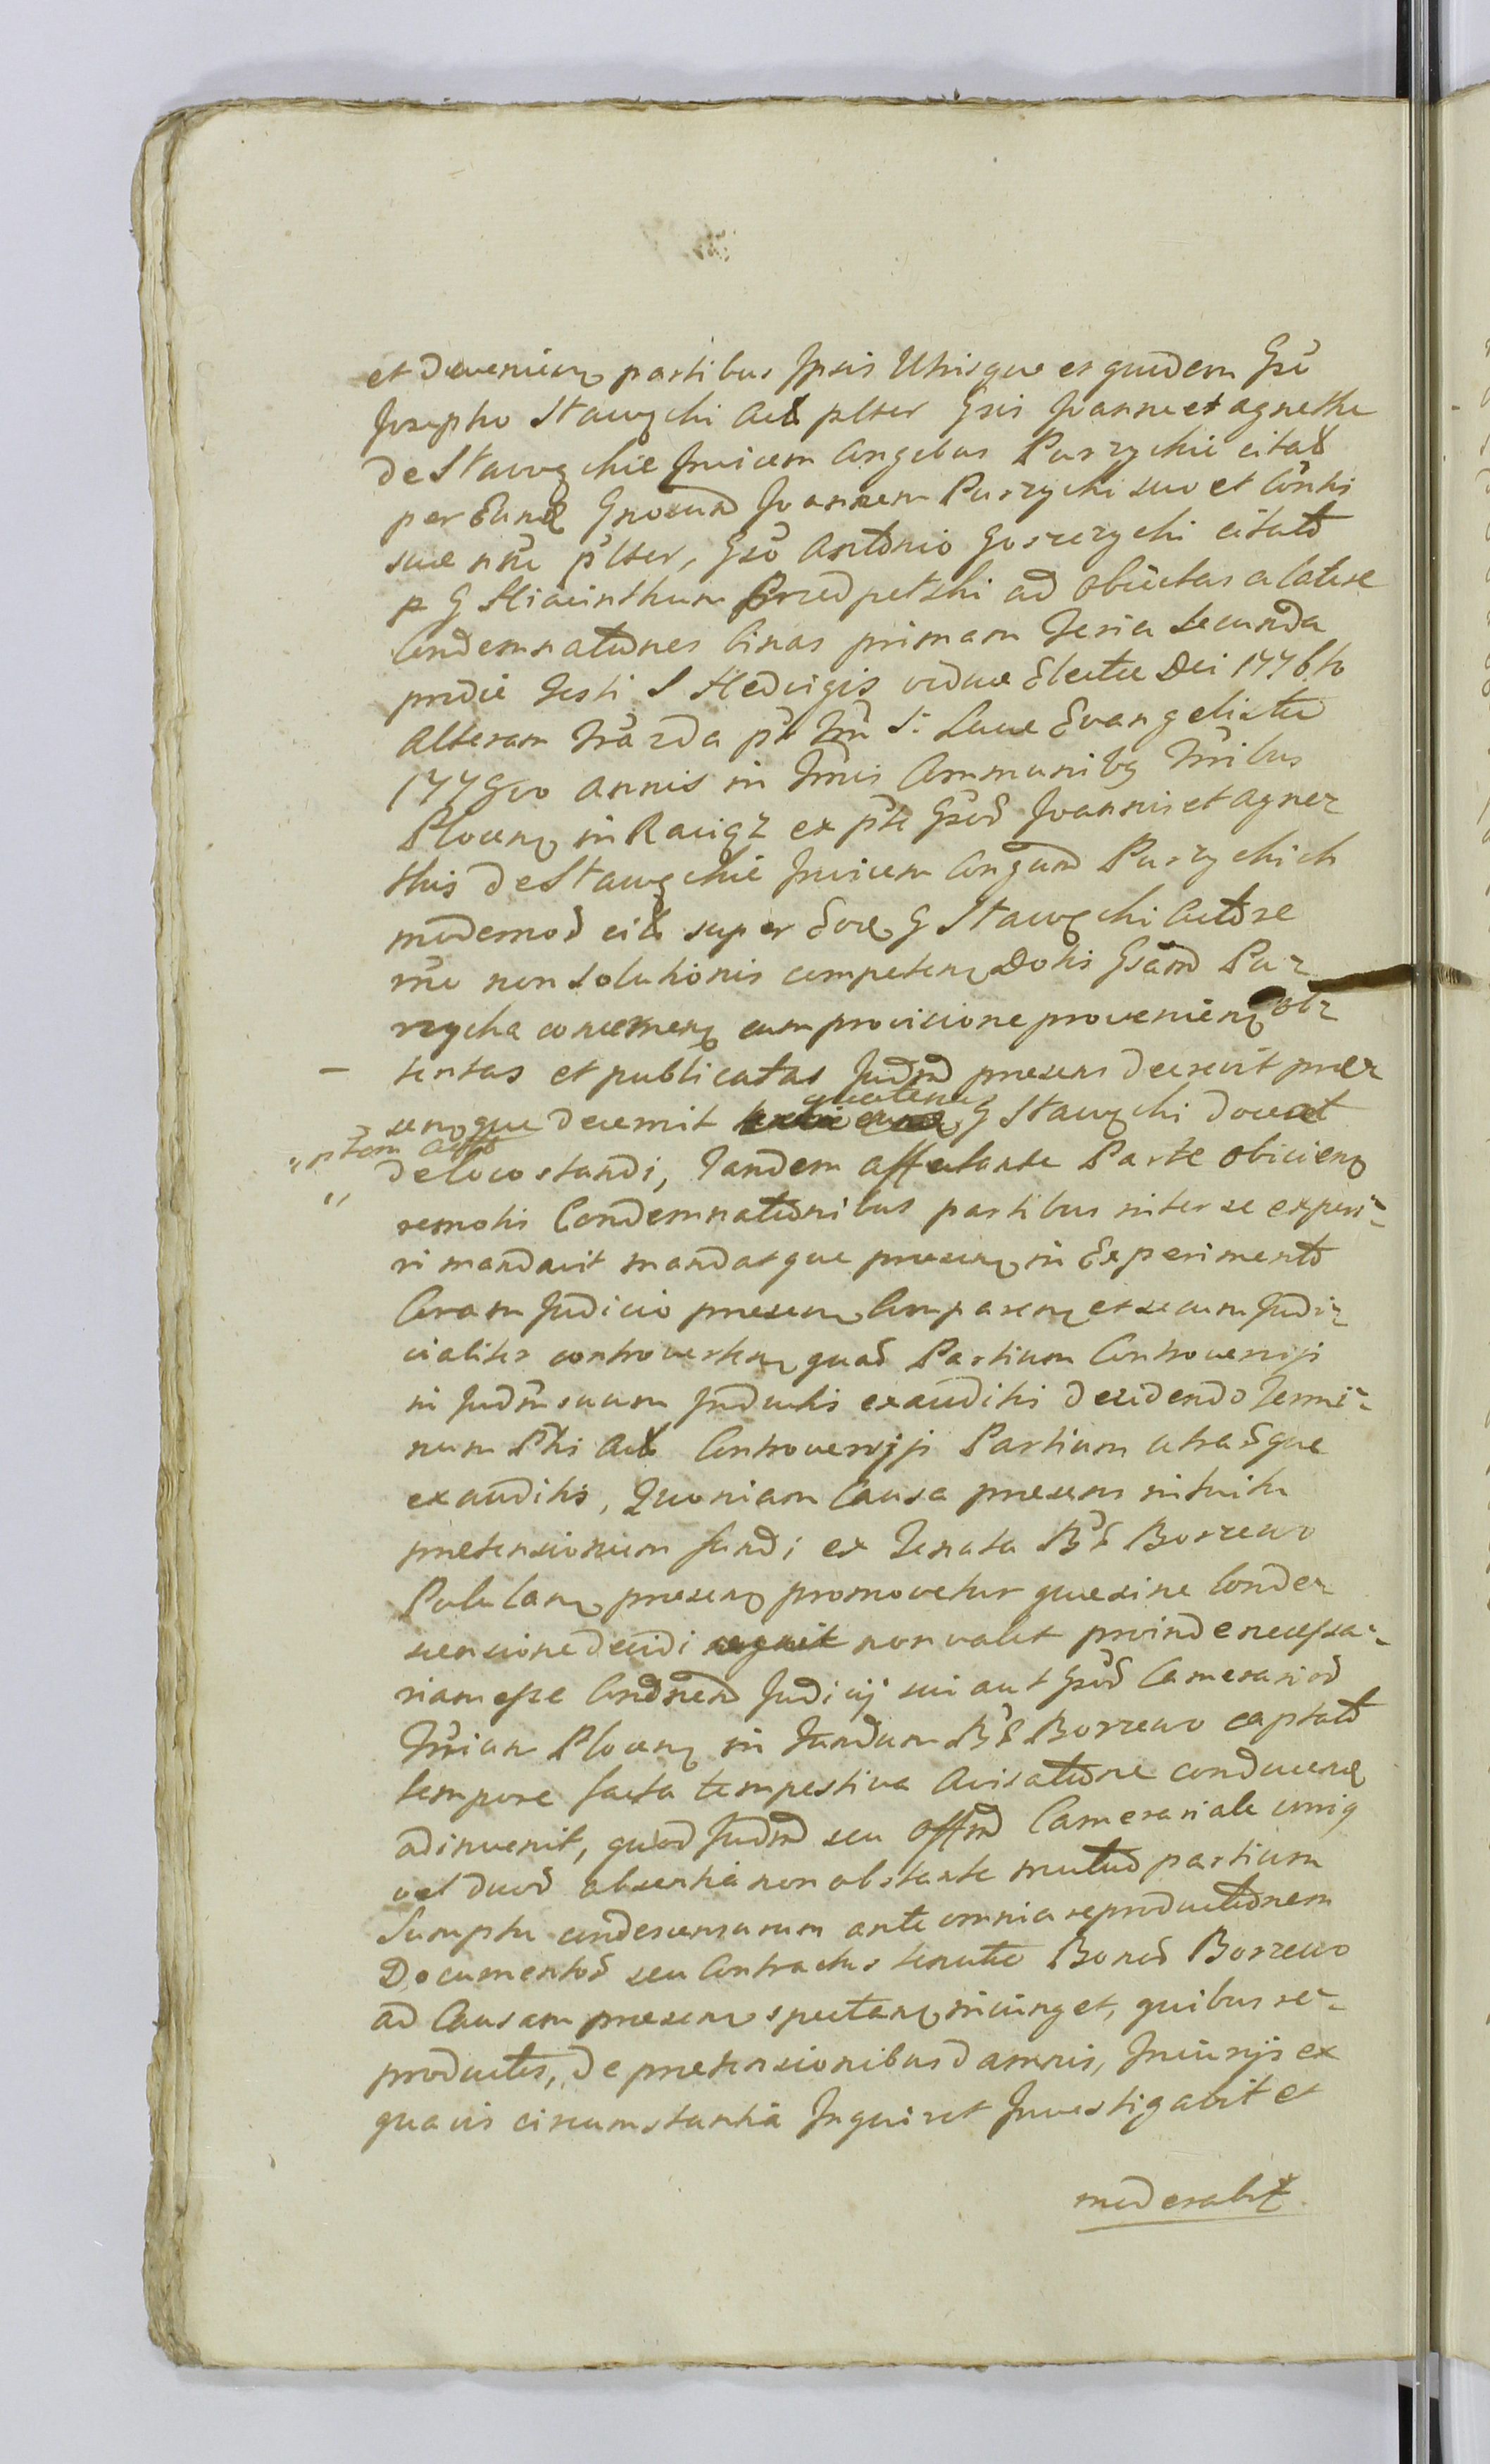 et devenien partibus Ipsis Utrisque et quidem Gso
Josepho Stawski Act plter Gsis Joanne et Agnethe
de Stawskie Invicem Cngibus Parzychie citat
per Eund Gnosum Joannem Parzychi suo et Conthi
sue nne plter, Gso Antonio Goszczychi citato
p G Hiacinthum ad Obiectas a latere
Condemnationes binas primam Feria Secunda
pridie Festi S Hedvigis vidue Electe Dei 1776to
Alteram Fria 2da pt Fm S: Luce Evangeliste
1779no annis in Tmis Communibq Trribus
Plocen in Raciąz ex pte Gsod Joannis et Agnez
this de Stawskie Invicem Congum Parzychich
modernod cit super Eore G Stawski Actore
rne non Solutionis competen Dotis Gsam Par
rzycha concernen cum provisione provenien obz
tentas et publicatas Judm presens decrevit prez
senque decernit quatenus G Stawski docuat
de loco standi, Tandem affectante Parte obicien
remotis Condemnationibus partibus inter se experi-
ri mandavit mandatque presen in Experimento
Coram Judicio presen Comparen et secum Judi-
cialiter controverten quad Partium Controversiis
in Judm suum Inductis exauditis decidendo Termi-
num Phi Act Controversiis Partium utrasque
exauditis, Quoniam Causa presens intuitu
pretensionum fundi ex Tenuta B{ Borzewo
presen promovetur que sine Conde-
scensione decidi nequit non valet proinde necessa-
riam esse Condnem Judicij sui aut Gsod Camerariod
Trrian Plocen in Fundum B{ Borzewo captato
tempore facta tempestiva Avisatione conducen
adinvenit, quod Judm seu Offm Camerariale uniq
vel duod absentia non obstante mutuo partium
Sumptu condescensurum ante omnia reproductionem
Documentod seu Contractus tenute Bonod Borzewo
ad Causam presen spectan iniunget, quibus re-
productis, de pretensionibus damnis, Iniuriis ex
quavis circumstantia Inquiret Investigabit et
moderabit